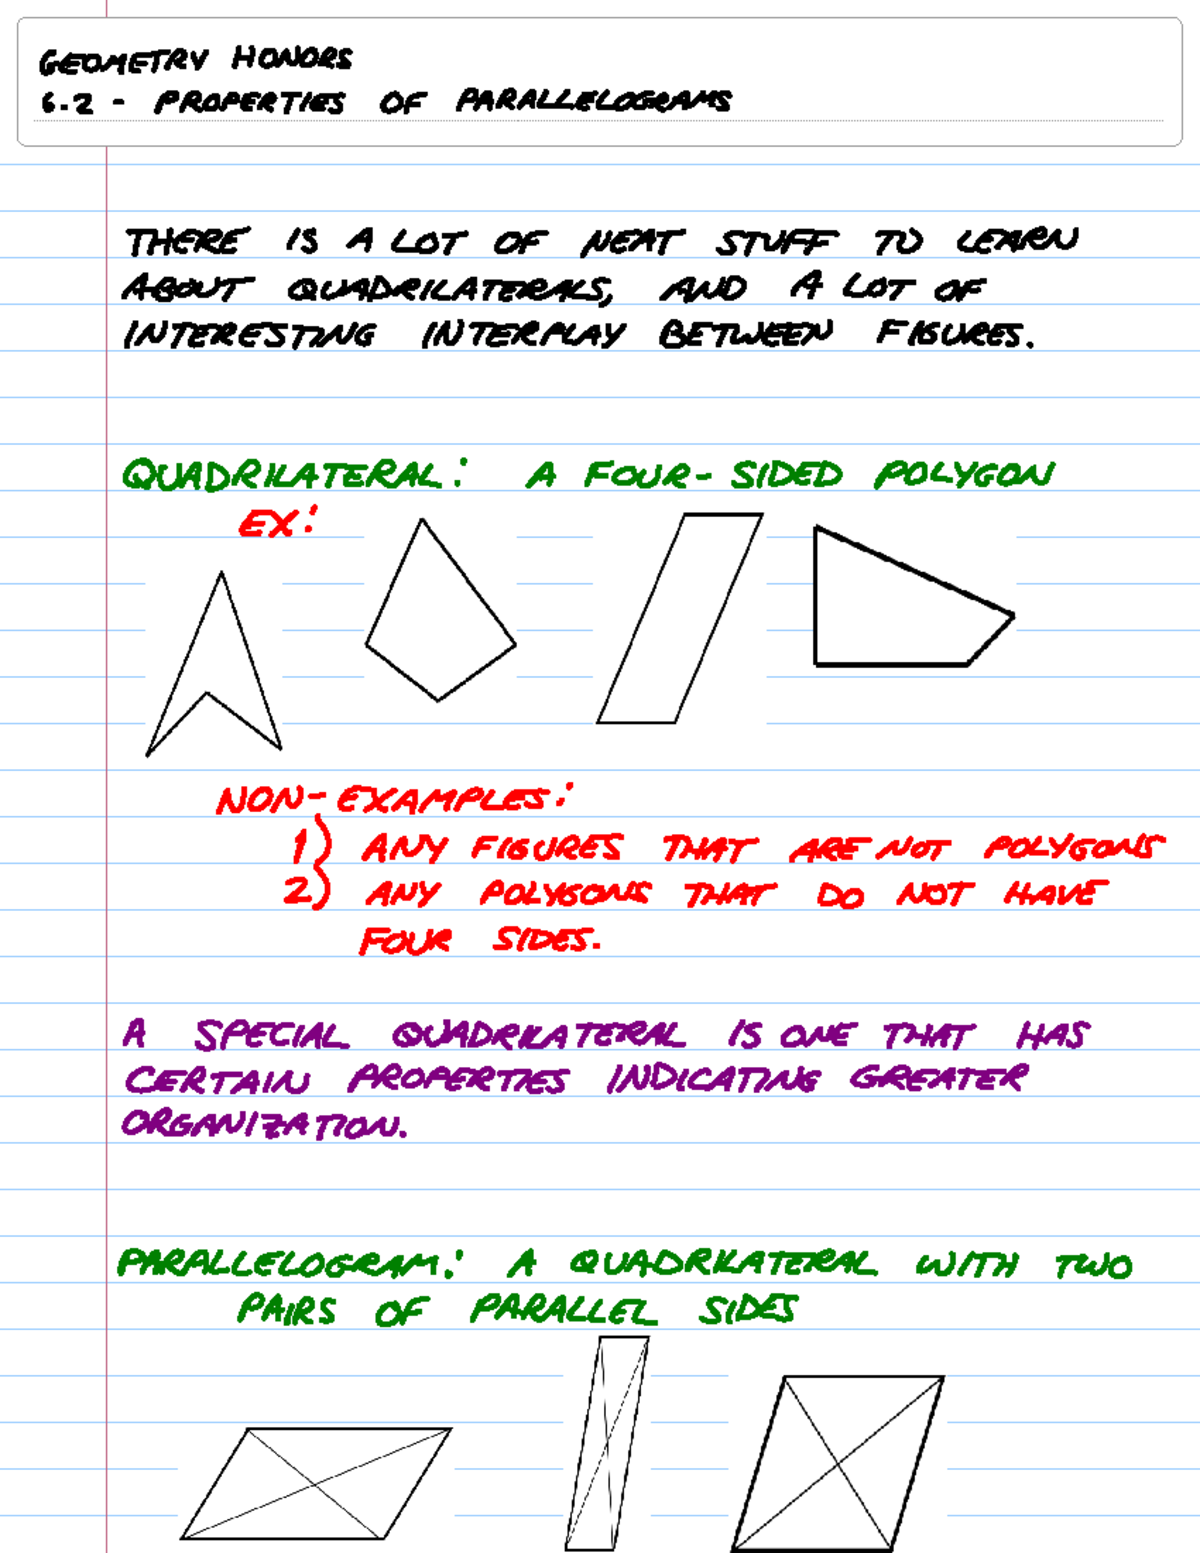 GEOMETRY HONORS
6.2 - PROPERTIES OF PARALLELOGRAMS
THERE IS A LOT OF NEAT STUFF TO LEARN
ABOUT QUADRILATERALS, AND A LOT OF
INTERESTING INTERPLAY BETWEEN FIGURES.
QUADRILATERAL: A FOUR-SIDED POLYGON
EX:
NON-EXAMPLES:
1) ANY FIGURES THAT ARE NOT POLYGONS
2) ANY POLYGONS THAT DO NOT HAVE
FOUR SIDES.
A SPECIAL QUADRILATERAL IS ONE THAT HAS
CERTAIN PROPERTIES INDICATING GREATER
ORGANIZATION.
PARALLELOGRAM: A QUADRILATERAL WITH TWO
PAIRS OF PARALLEL SIDES